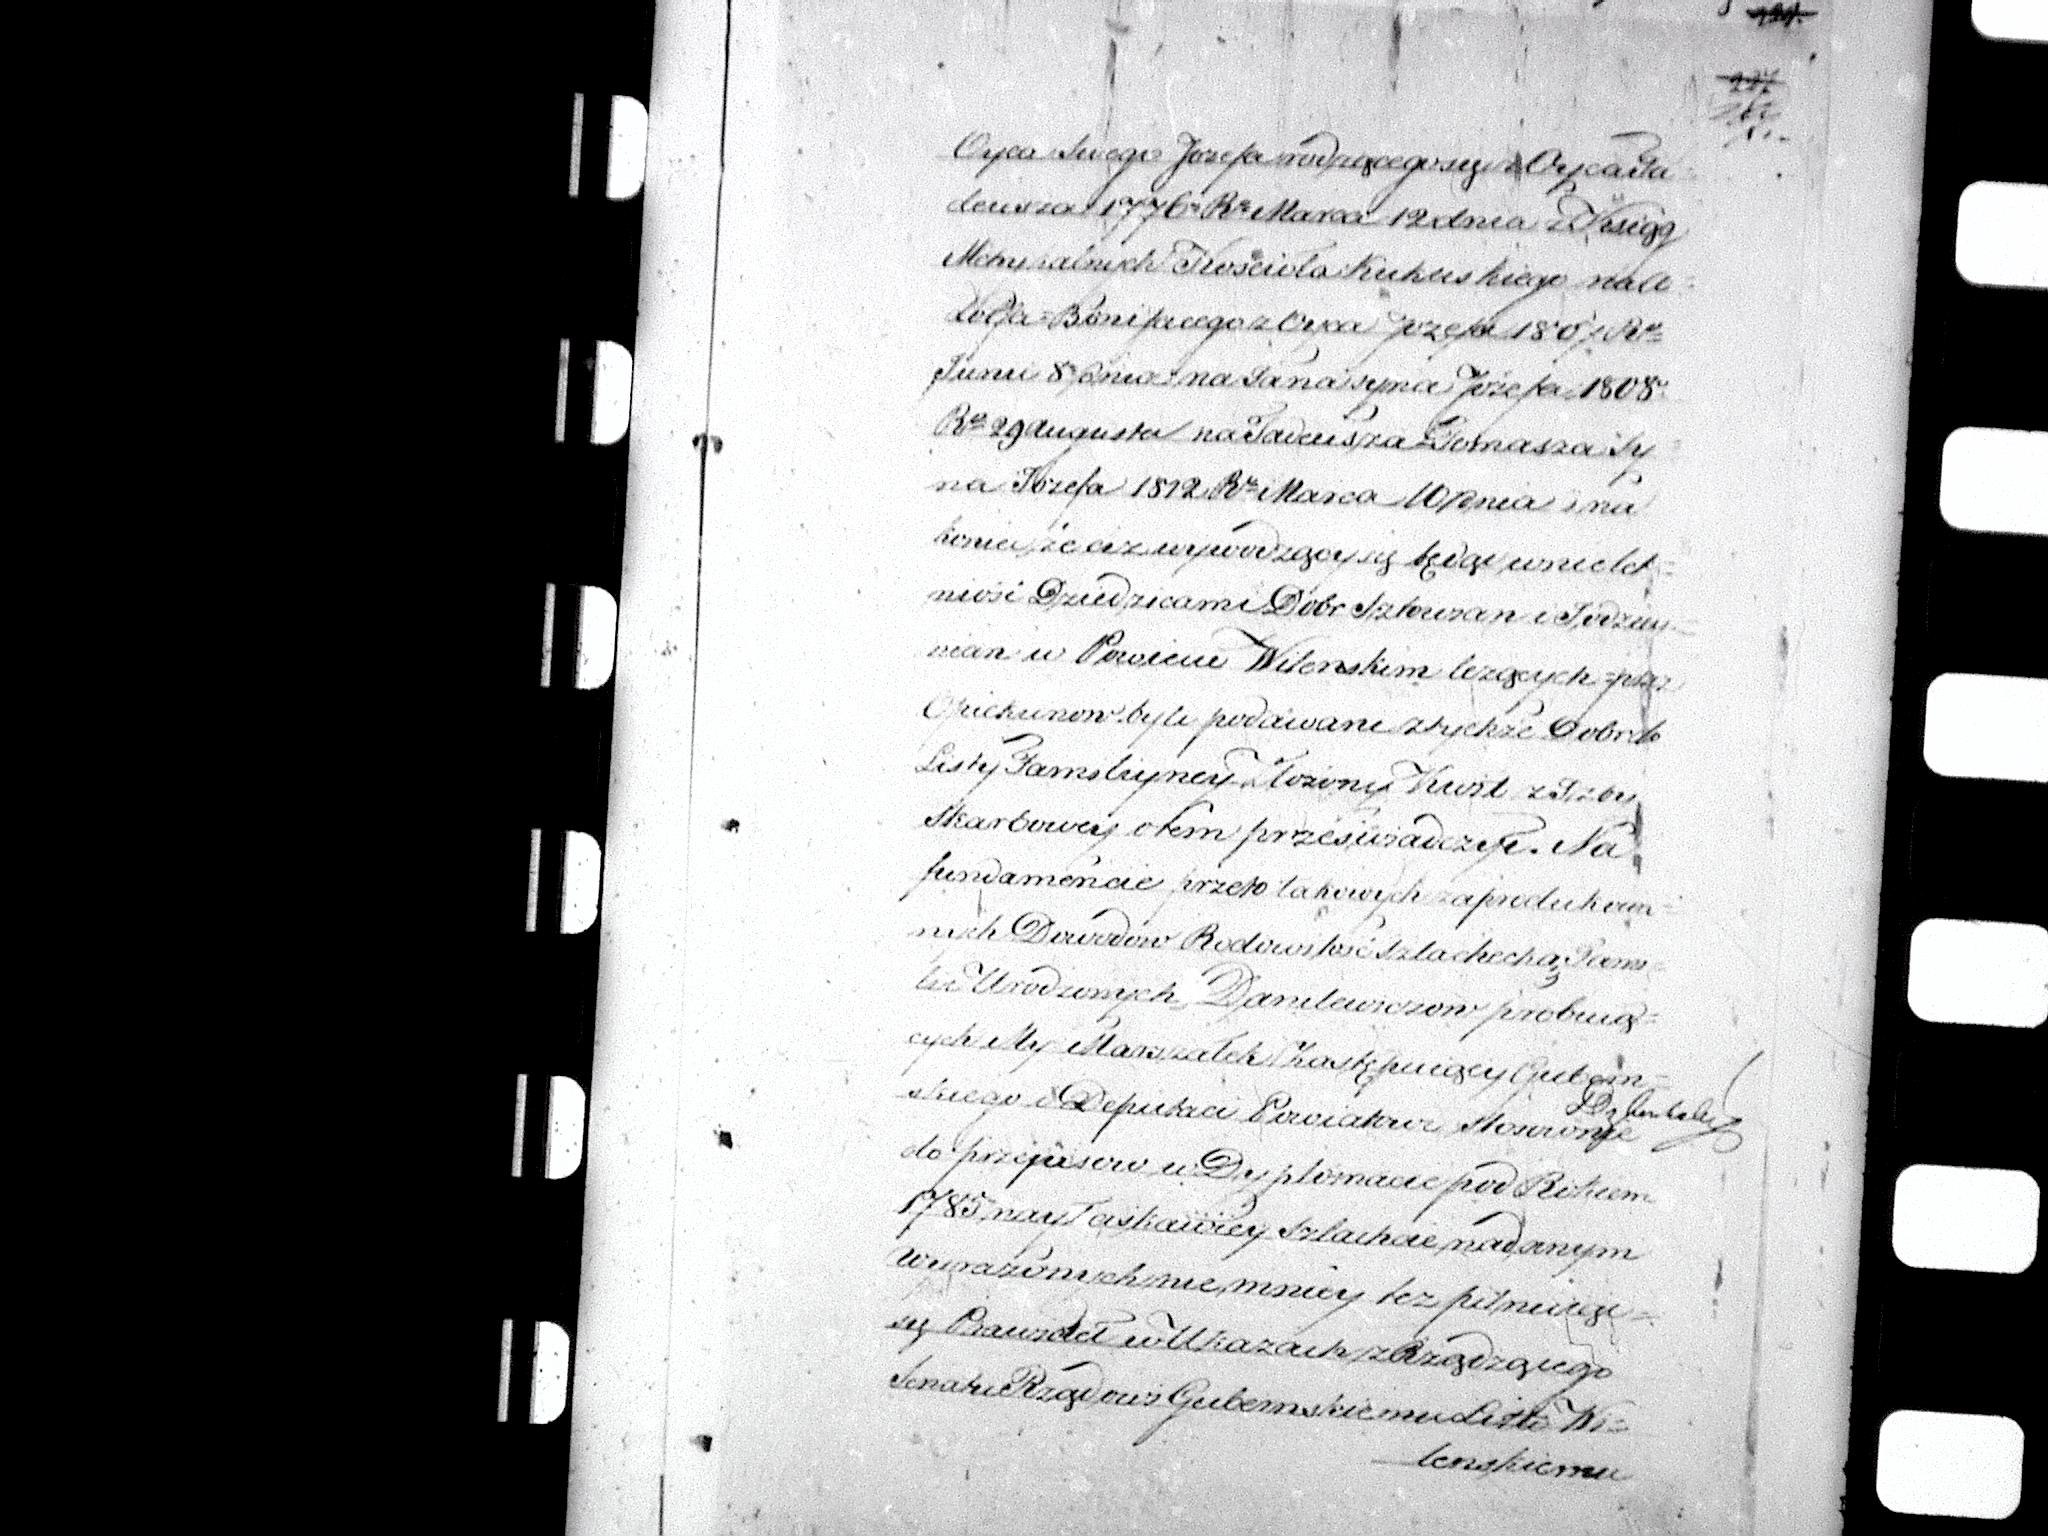 Oyca swego Jozefa rodzącego się z Oyca Ta=
deusza 1776º Rº Marca 12 dnia z Xsiąg
Metrykalnych Kościoła Kukuskiego na A=
dolfa=Bonifacego z Oyca Jozefa 1807 Rº
Junii 8 dnia na Jana syna Jozefa 1808º
Rº 29 Augusta na Tadeusza=Tomasza Sy=
na Jozefa 1812 Rº Marca 10 dnia i na
koniec że ciż wywodzący się będąc w nielet=
ności Dziedzicami Dobr Szkurzan i Jodzun=
nian w Powiecie Wilenskim leżących przez
Opiekunow byli podawani z tychże Dobr do
Listy Familiyney Złożony Kwit z Izby
Skarbowey o tem przeświadczył. Na
fundamencie przeto takowych zaprodukowa=
nych Dowodow Rodowitość szlachecką Fami=
lii Urodzonych Danilewiczow probuią=
cych My Marszałek Zastępuiący Gubern=
skiego i Deputaci Powiatowi stosownie
do przepisow w Dyplomacie pod Rokiem
1785 nayłaskawiey Szlachcie nadanym
wyrażonych nie mniey też pilnuiąc=
się Prawideł w Ukazach z Rządzącego
Senatu Rządowi Gubernskiemu Litt: Wi=
lenskiemu